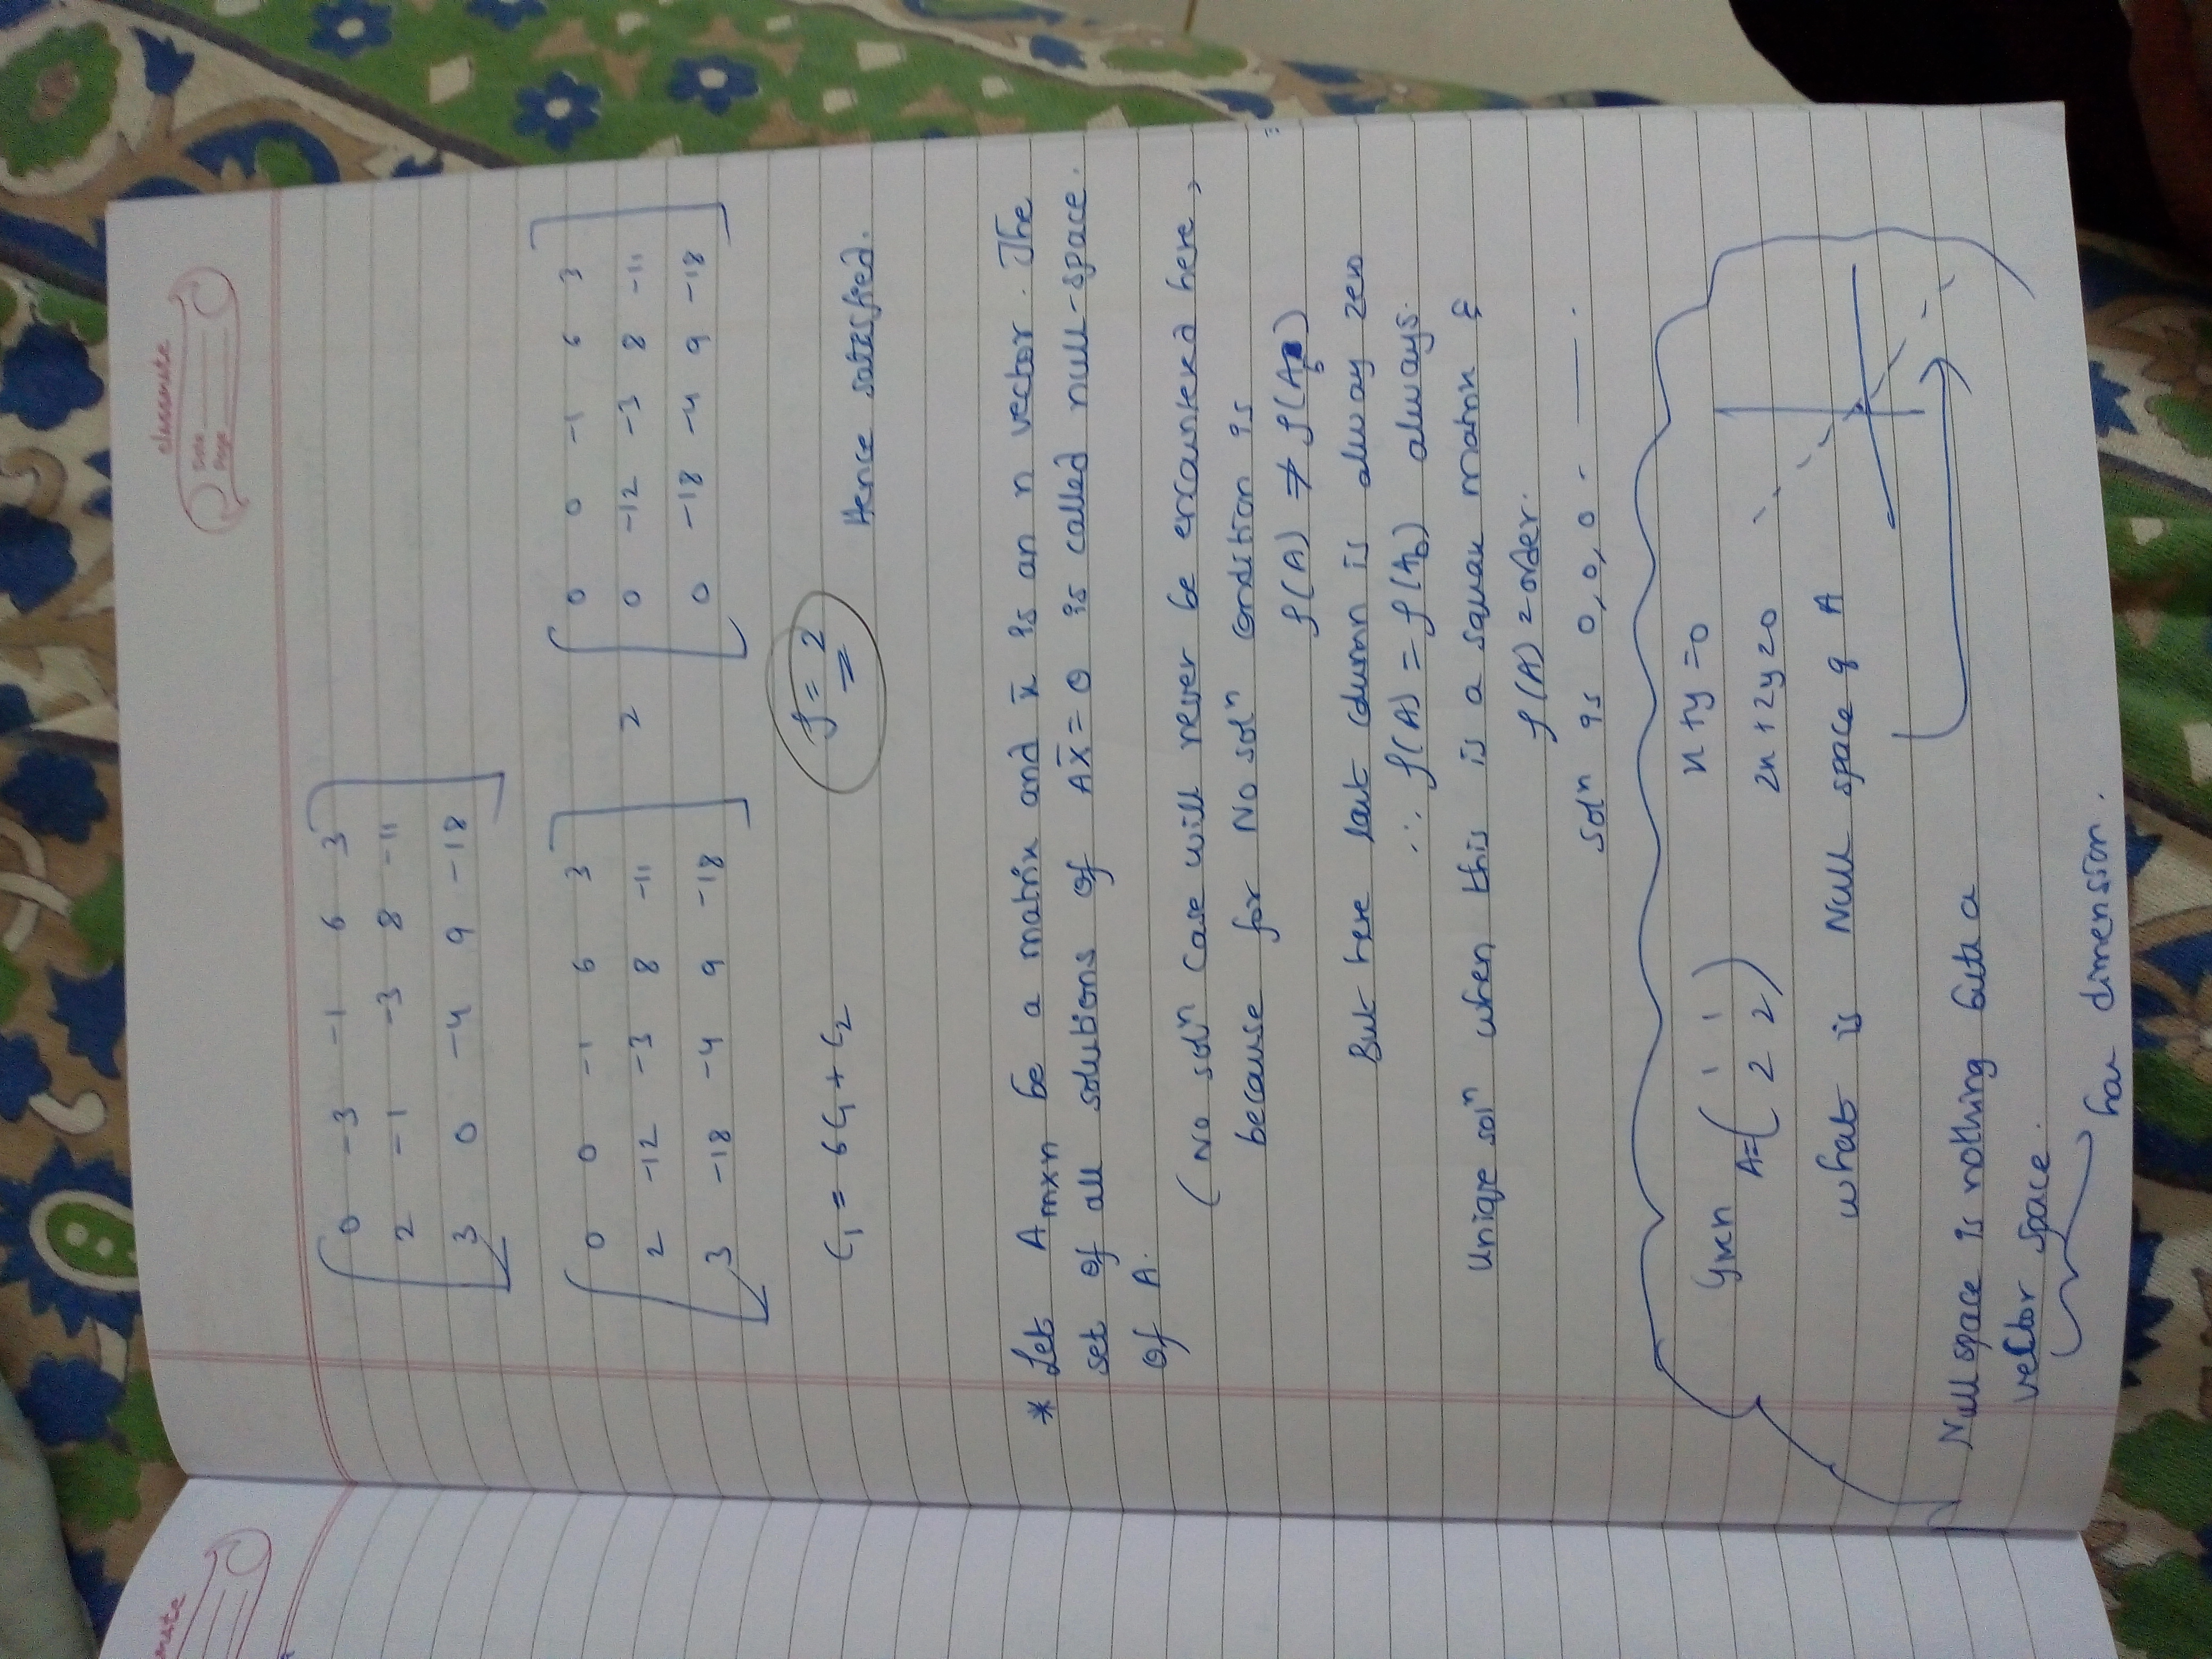 classmate
Date
Page
0 -3 -1 6 3
2 -1 -3 8 -11
3 0 -4 9 -18
0 0 -1 6 3
2 -12 -3 8 -11
3 -18 -4 9 -18
2
0 0 -1 6 3
0 -12 -3 8 -11
0 -18 -4 9 -18
C₁ = 6C₁ + C₂
ρ = 2
Hence satisfied.
* Let A m×n be a matrix and x̄ is an n vector. The
set of all solutions of Ax̄ = 0 is called null-space
of A.
(No solⁿ case will never be encountered here,
because for No solⁿ condition is
ρ(A) ≠ ρ(A_b)
But here last column is always zero
∴ ρ(A) = ρ(A_b) always.
Unique solⁿ when this is a square matrix &
ρ(A) = order.
solⁿ is 0, 0, 0 . — .
Given
A = ( 1 1
2 2 )
x + y = 0
2x + 2y = 0
what is Null space of A
Null space is nothing but a
vector space.
has dimension.